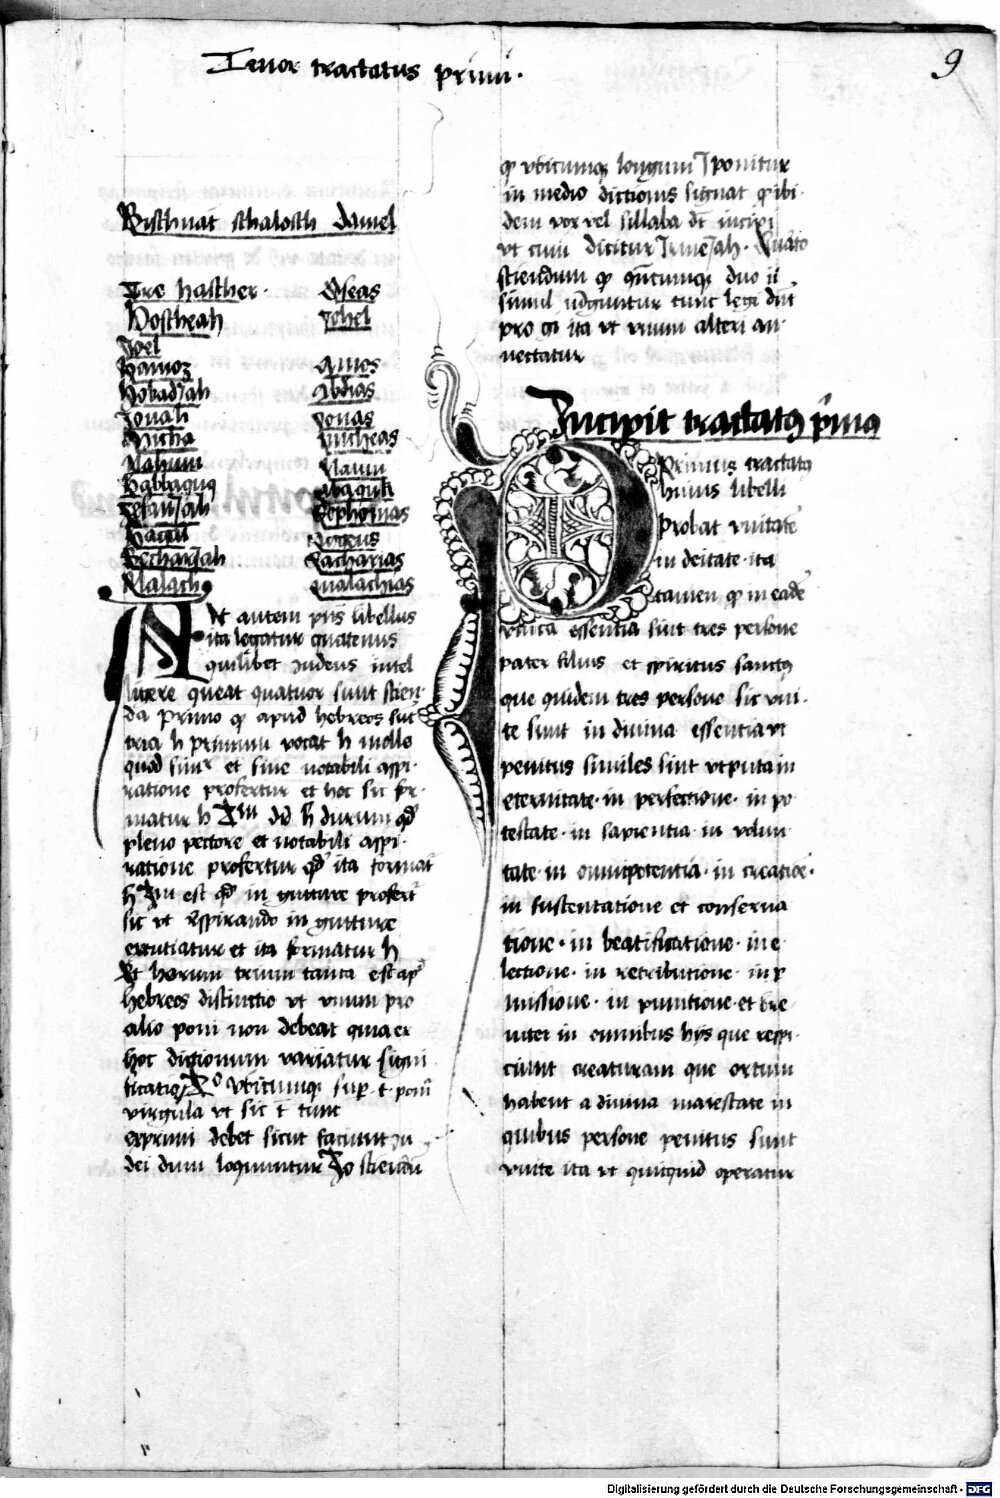 Tenor tractatus primi.
9
Bischnat schalosch daniel
Tre hascher. Oseas
Hoscheah Johel
Joel
Hamoz Amos
Hobadjah Abdias
Jonah Jonas
Micha Micheas
Nahum Naum
Habbaquq Abaquk
Zefanjah Sophonias
Haggi Aggeus
Secharjah Sacharias
Malachj Malachias
Ut autem pns libellus
ita legatur quatenus
quilibet Judeus intel
ligere queat quatuor sunt scien-
da Primo qp apud hebreos sut
tria h primum vocat h molle
quod simr et sine notabili aspi-
ratione profertur et hoc sic for-
matur h 2m dr h durum qd
pleno pectore et notabili aspi-
ratione profertur qd ita format
h 3m est qd in gutture profert
sic vt respirando in gutture
excutiatur et ita formatur h
Et horum trium tanta est ap
hebreos distinctio vt vnum pro
alio poni non debeat quia ex
hoc dictionum variatur signi
ficatio 2o vbicumq sup t poni
virgula vt sic t tunc
exprimi debet sicut faciunt Ju
dei dum loquuntur 3o sciendu
qp vbicumq longum J ponitur
in medio dictionis signat qp ibi-
dem vox vel sillaba dt incipi
vt cum dicitur Jrmejah. Quarto
sciendum qp qncumq duo ii
simul iungintur tunc legi dnt
pro gi ita vt vnum alteri an-
nectatur
Incipit tractatq pimq
Primus tractatq
huius libelli
probat vnitate
in deitate ita
tamen qp in eade
vnica essentia sint tres persone
pater filius et spiritus sanctq
que quidem tres persone sic vni-
te sunt in diuina essentia vt
penitus similes sint vtputa in
eternitate. in perfectione. in po
testate. in sapientia. in volun
tate. in omnipotentia. in creatioe.
in sustentatione et conserua
tione. in beatificatione. in e
lectione. in retributione. in p
missione. in punitione. et bre
uiter in omnibus hijs que respi-
ciunt creaturam que ortum
habent a diuina maiestate in
quibus persone penitus sunt
vnite ita vt quicquid operatur
Digitalisierung gefördert durch die Deutsche Forschungsgemeinschaft - DFG